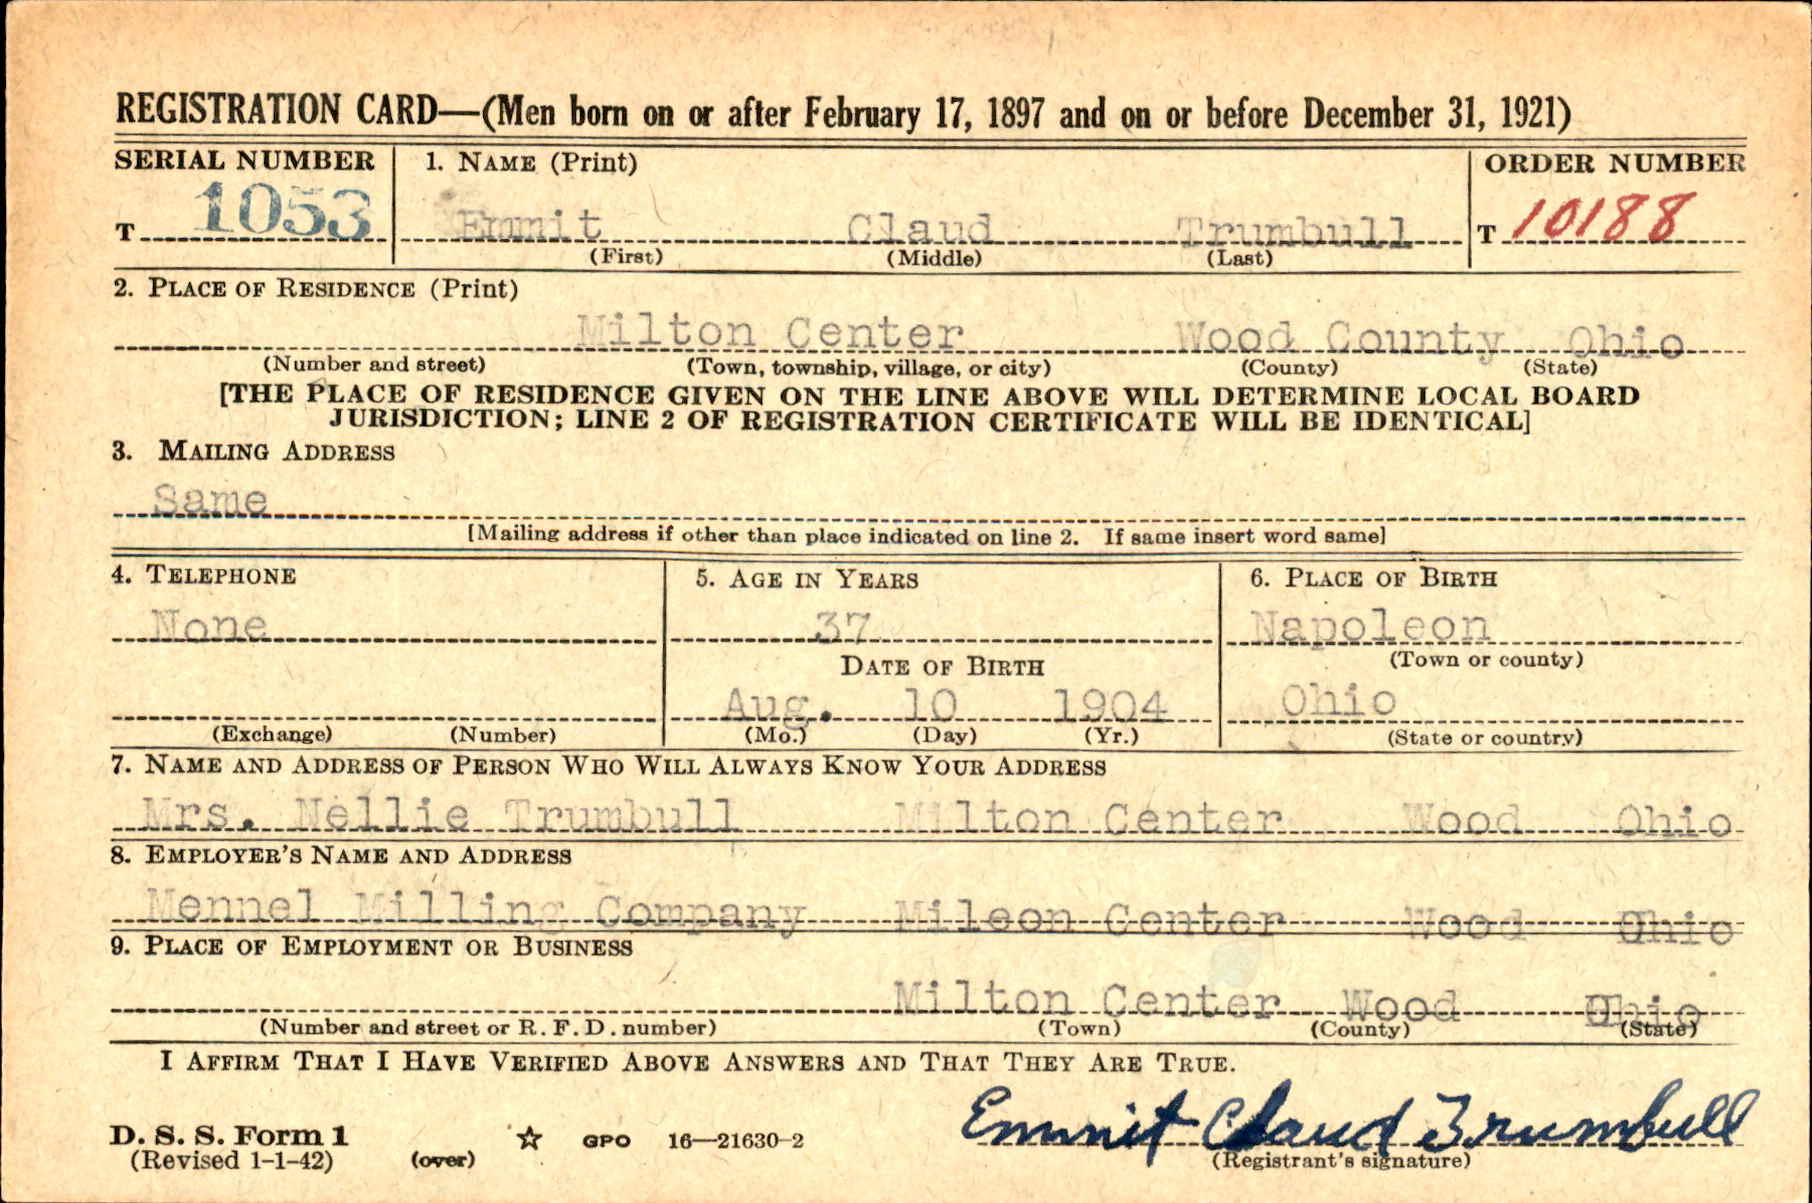 REGISTRATION CARD—(Men born on or after February 17, 1897 and on or before December 31, 1921)
SERIAL NUMBER 1. NAME (Print) ORDER NUMBER
T 1053 Emmit Claud Trumbull T 10188
(First) (Middle) (Last)
2. PLACE OF RESIDENCE (Print)
Milton Center Wood County Ohio
(Number and street) (Town, township, village, or city) (County) (State)
[THE PLACE OF RESIDENCE GIVEN ON THE LINE ABOVE WILL DETERMINE LOCAL BOARD
JURISDICTION; LINE 2 OF REGISTRATION CERTIFICATE WILL BE IDENTICAL]
3. MAILING ADDRESS
Same
[Mailing address if other than place indicated on line 2. If same insert word same]
4. TELEPHONE 5. AGE IN YEARS 6. PLACE OF BIRTH
None 37 Napoleon
DATE OF BIRTH (Town or county)
Aug. 10 1904 Ohio
(Exchange) (Number) (Mo.) (Day) (Yr.) (State or country)
7. NAME AND ADDRESS OF PERSON WHO WILL ALWAYS KNOW YOUR ADDRESS
Mrs. Nellie Trumbull Milton Center Wood Ohio
8. EMPLOYER'S NAME AND ADDRESS
Mennel Milling Company Mileon Center Wood Ohio
9. PLACE OF EMPLOYMENT OR BUSINESS
Milton Center Wood Ohio
(Number and street or R. F. D. number) (Town) (County) (State)
I AFFIRM THAT I HAVE VERIFIED ABOVE ANSWERS AND THAT THEY ARE TRUE.
Emmit Claud Trumbull
D. S. S. Form 1 GPO 16—21630-2
(Revised 1-1-42) (over) (Registrant's signature)